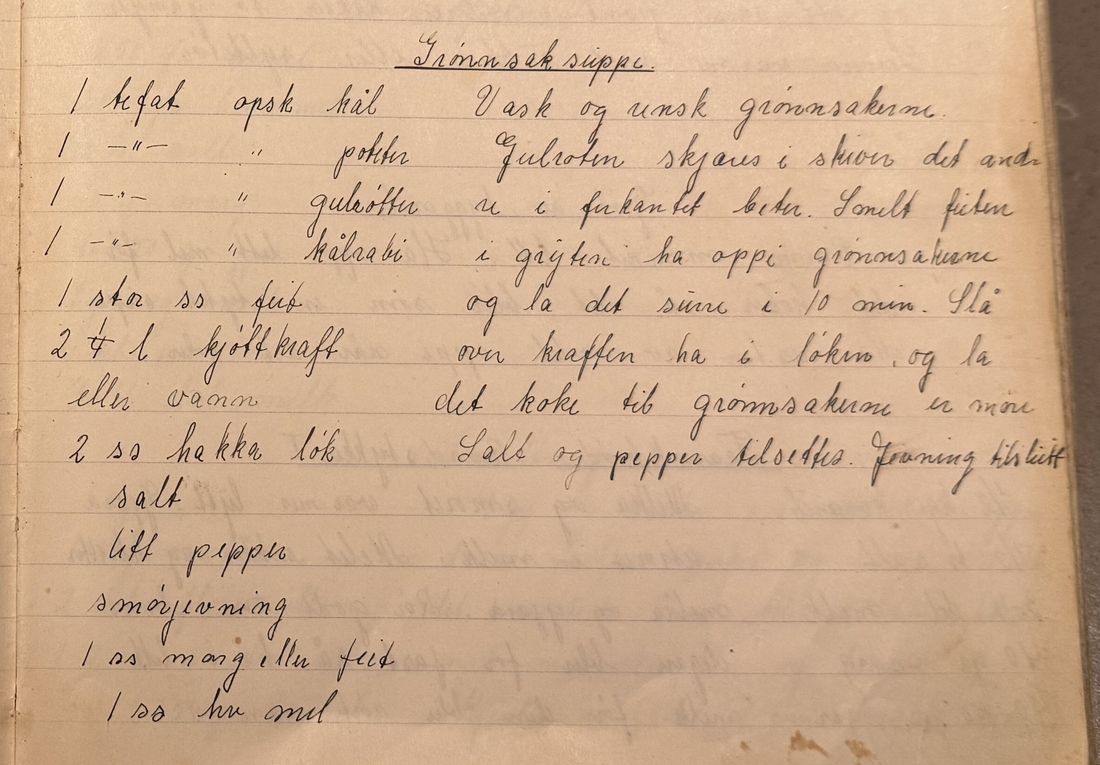 Grønnsaksuppe.
1 tefat opsk kål
1 —"— " poteter
1 —"— " gulrøtter
1 —"— " kålrabi
1 stor ss feit
2 4 l kjøttkraft
eller vann
2 ss hakka løk
salt
litt pepper
smørjevning
1 ss marg eller feit
1 ss hv mel
Vask og rensk grønnsakerne.
Gulroten skjæres i skiver det and-
re i firkantet beter. Smelt feiten
i gryten ha oppi grønnsakerne
og la det surre i 10 min. Slå
over kraften ha i løken, og la
det koke til grønnsakerne er møre
Salt og pepper tilsettes. Jevning tilslutt